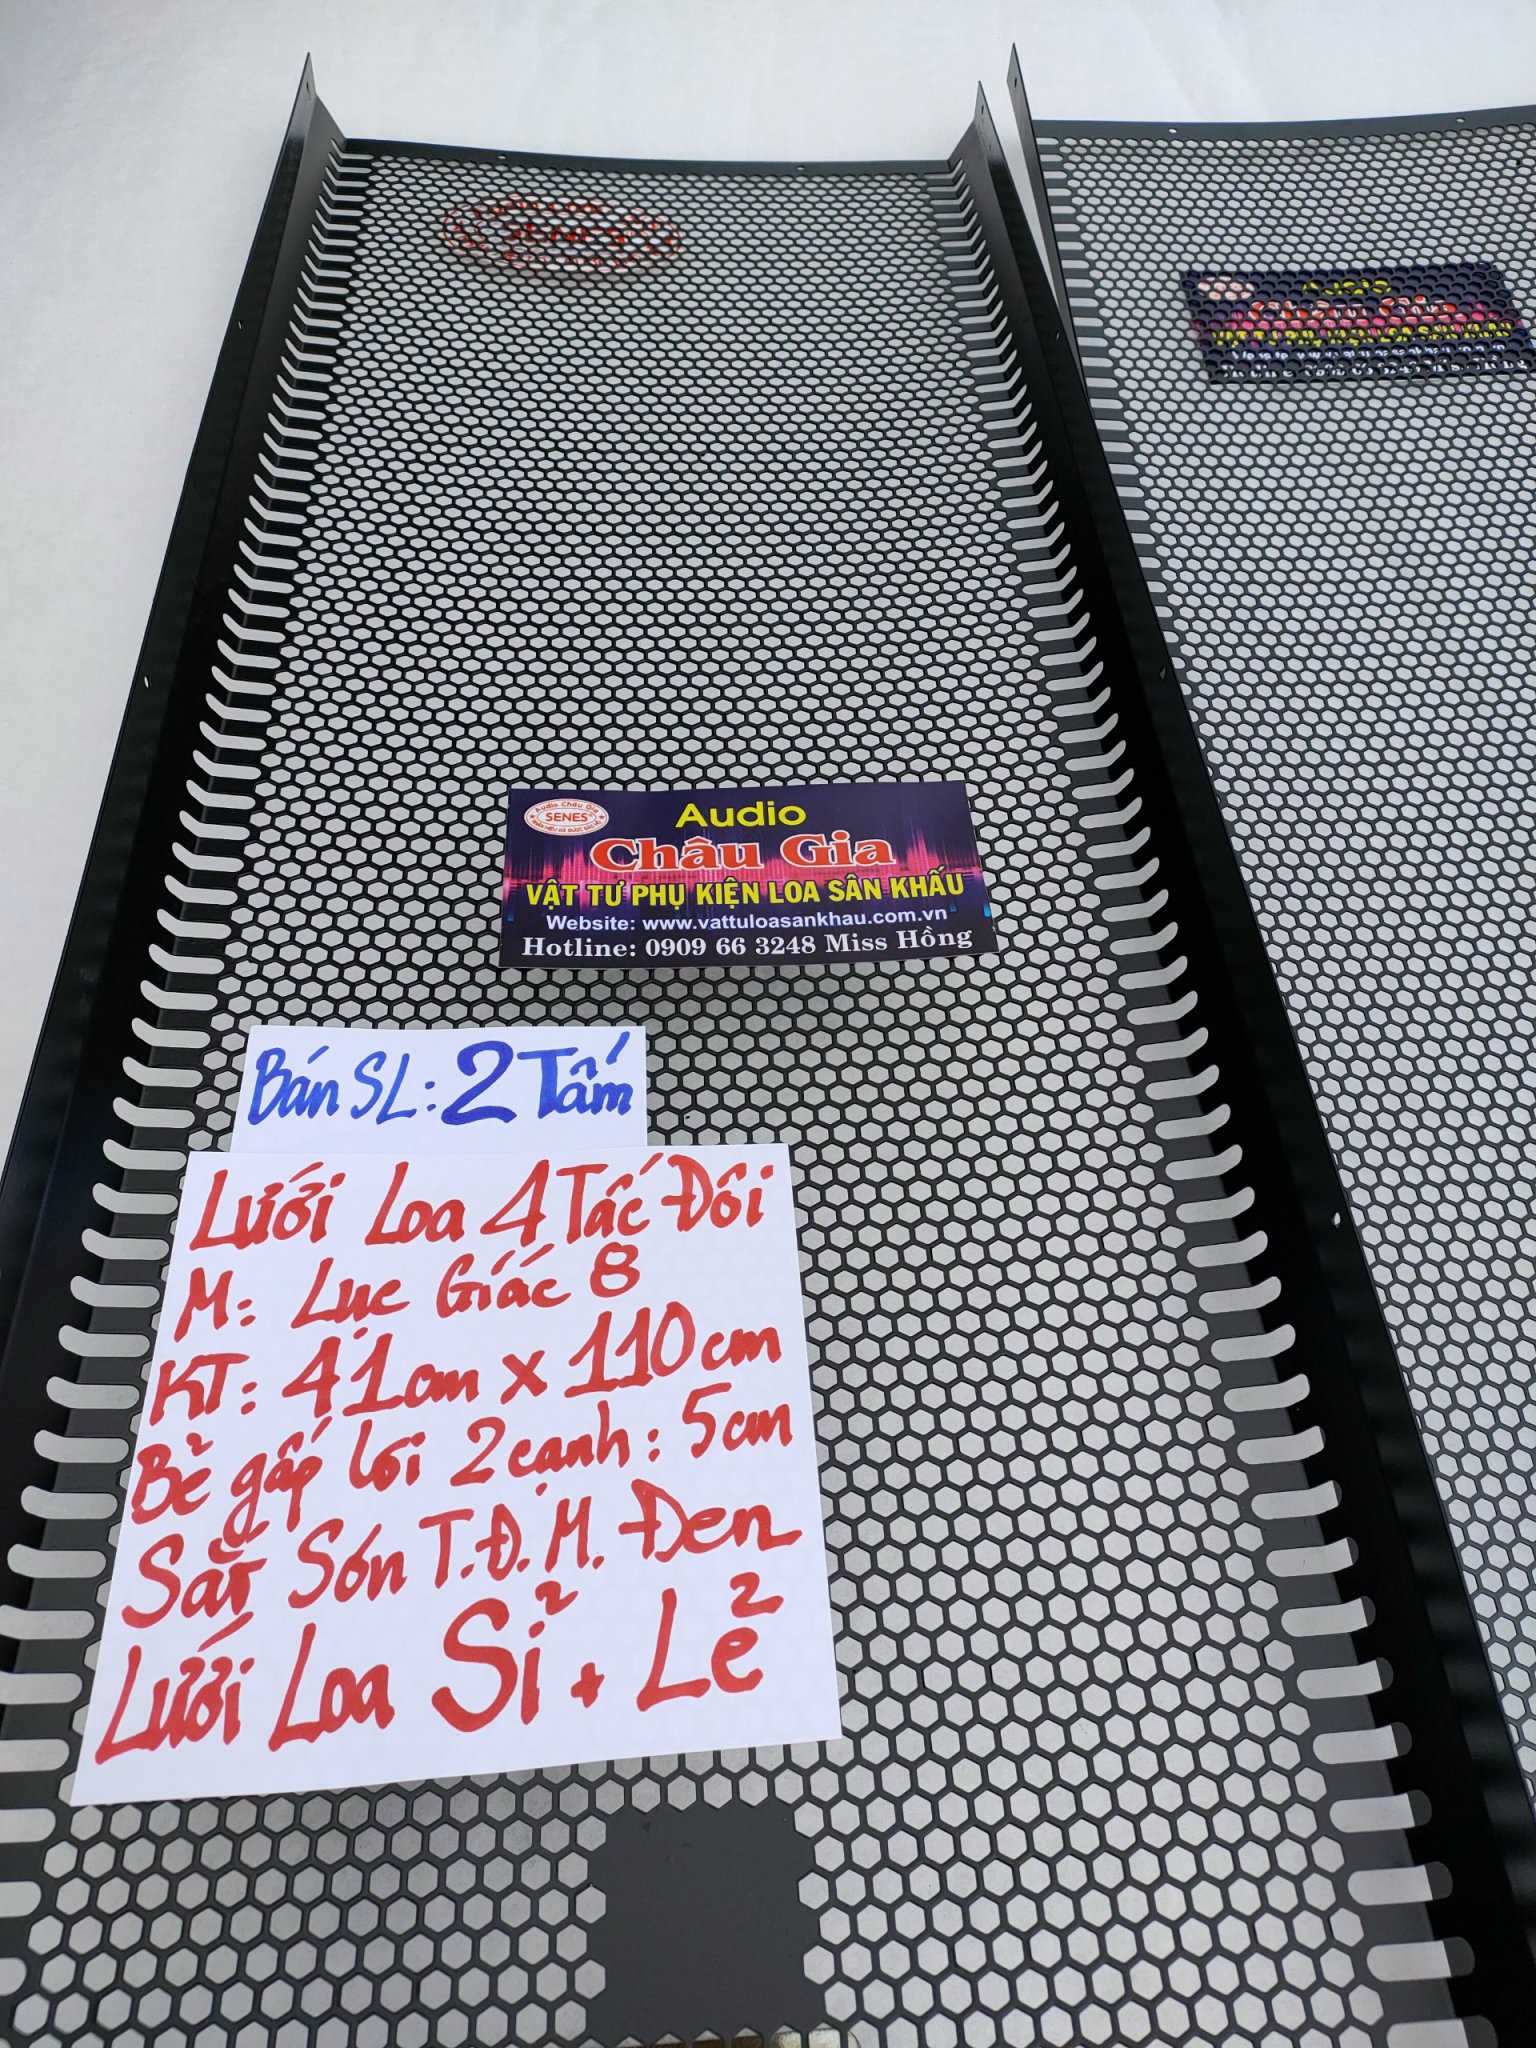 SENES
Audio
Châu Gia
VẬT TƯ PHỤ KIỆN LOA SÂN KHẤU
Audio Châu Gia
SENES®
NHÃN HIỆU ĐÃ ĐƯỢC BẢO HỘ
Audio
Châu Gia
VẬT TƯ PHỤ KIỆN LOA SÂN KHẤU
Website: www.vattuloasankhau.com.vn
Hotline: 0909 66 3248 Miss Hồng
Bán SL: 2 Tấm
Lưới Loa 4 Tấc Đôi
M: Lục Giác 8
KT: 41cm x 110cm
Bẻ gấp lõi 2 cạnh: 5cm
Sắt Sơn T.Đ.M. Đen
Lưới Loa Sỉ + Lẻ